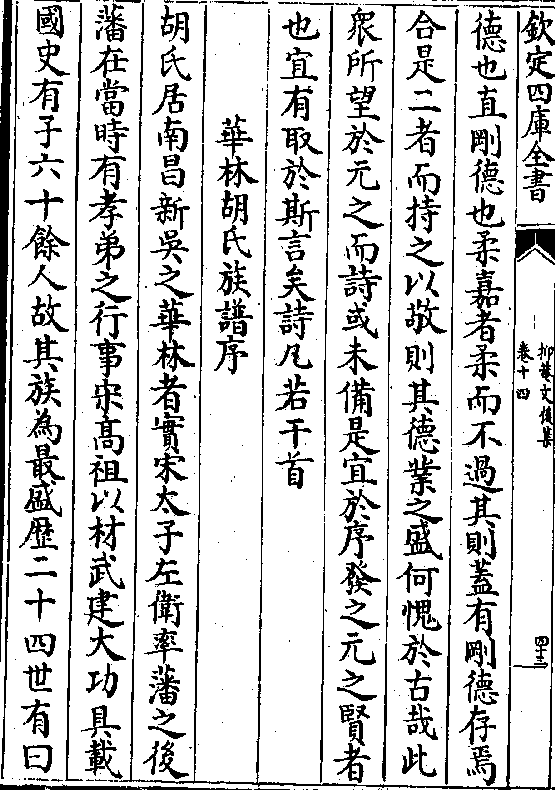 欽定四庫全書
抑菴文後集
卷十四
四十三
德也直剛德也柔嘉者柔而不過其則蓋有剛德存焉
合是二者而持之以敬則其德業之盛何愧於古哉此
衆所望於元之而詩或未備是宜於序發之元之賢者
也宜有取於斯言矣詩凡若干首
華林胡氏族譜序
胡氏居南昌新吳之華林者實宋太子左衛率藩之後
藩在當時有孝弟之行事宋高祖以材武建大功具載
國史有子六十餘人故其族為最盛歴二十四世有曰